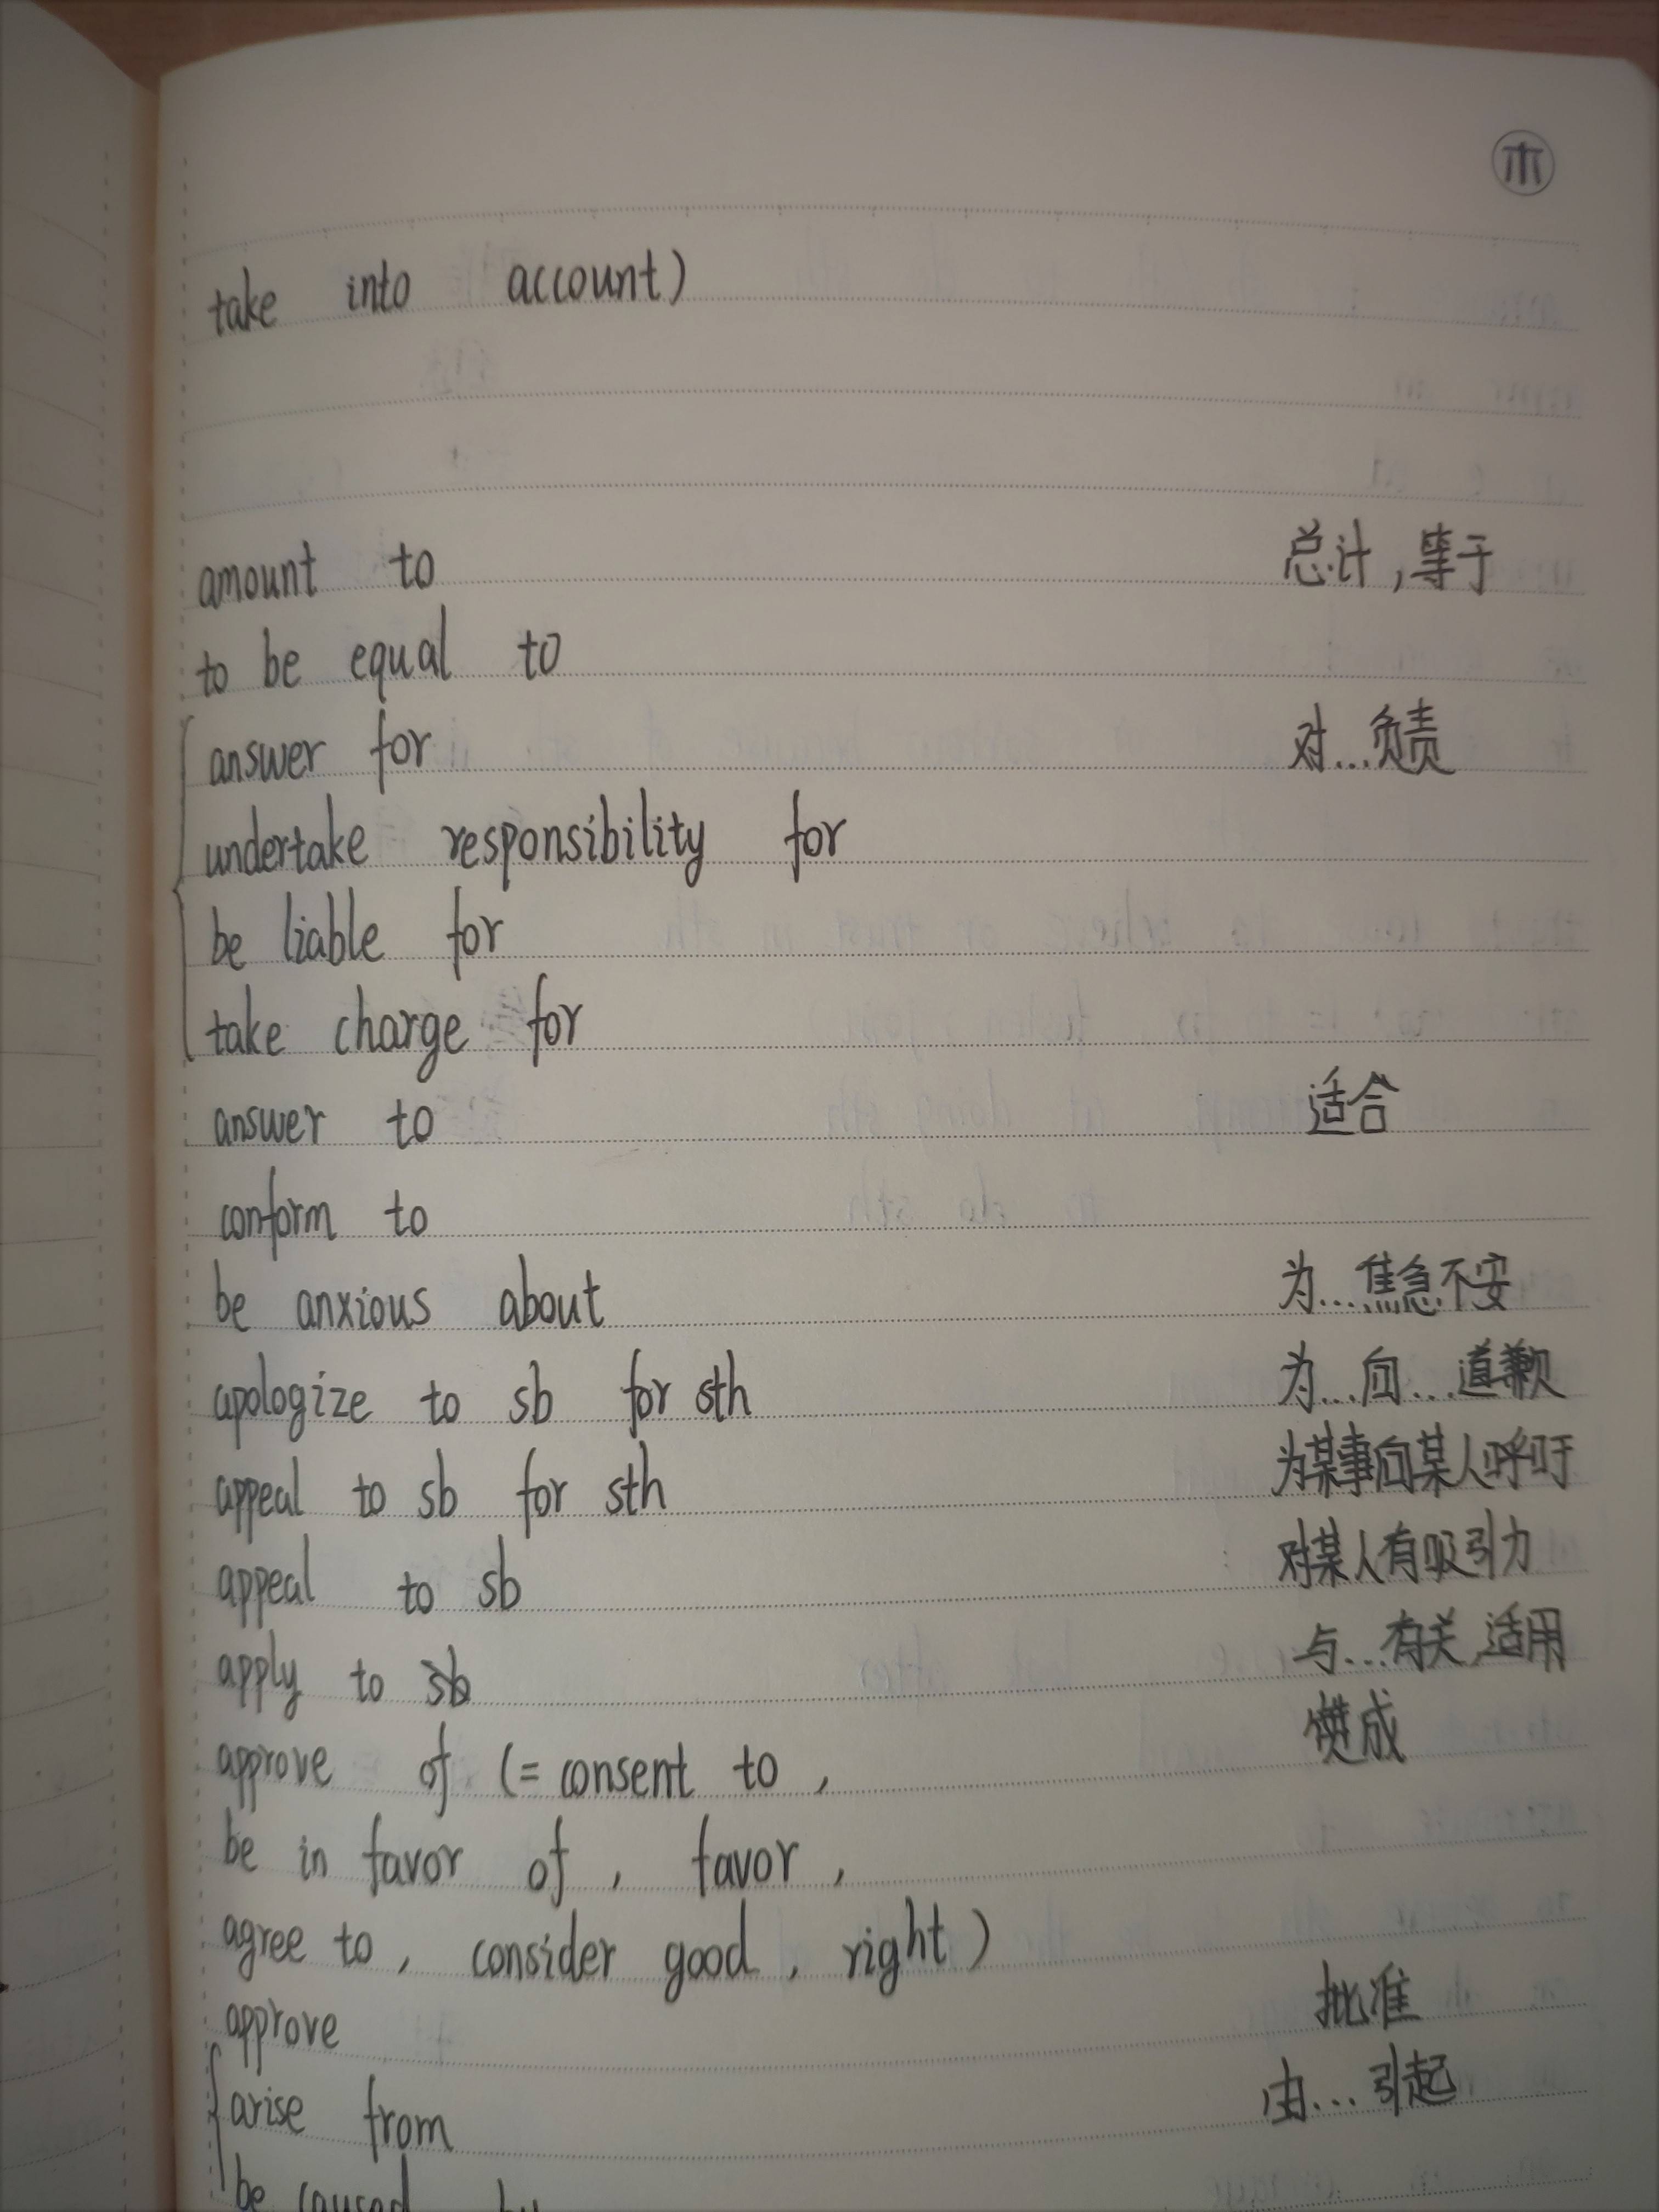 take into account)
amount to 总计,等于
to be equal to
answer for 对...负责
undertake responsibility for
be liable for
take charge for
answer to 适合
conform to
be anxious about 为...焦急不安
apologize to sb for sth 为...向...道歉
appeal to sb for sth 为某事向某人呼吁
appeal to sb 对某人有吸引力
apply to sb 与...有关,适用
approve of (= consent to, 赞成
be in favor of, favor,
agree to, consider good, right)
approve 批准
arise from 由...引起
be caused by